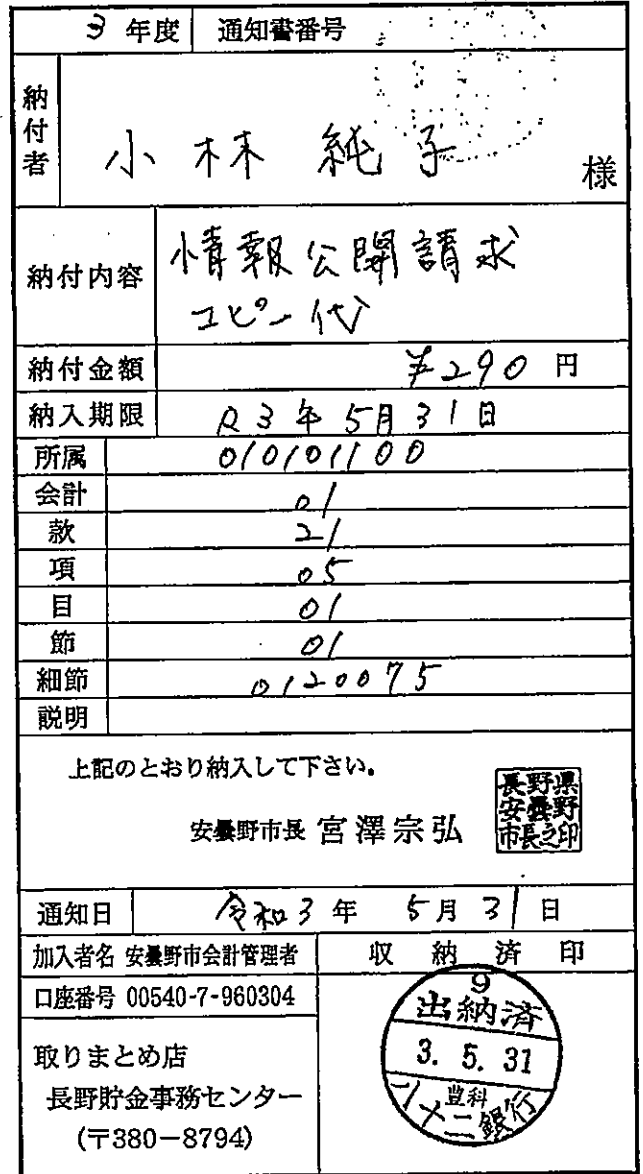 3 年度 通知書番号
納付者 小林 純子 様
納付内容 情報公開請求
コピー代
納付金額 ¥290 円
納入期限 R3年5月31日
所属 010101100
会計 01
款 21
項 05
目 01
節 01
細節 0120075
説明
上記のとおり納入して下さい。
安曇野市長 宮澤宗弘
長野県
安曇野
市長之印
通知日 令和3年 5月31日
加入者名 安曇野市会計管理者 収納済印
口座番号 00540-7-960304
取りまとめ店
長野貯金事務センター
(〒380-8794)
9
出納済
3.5.31
豊科
八十二銀行